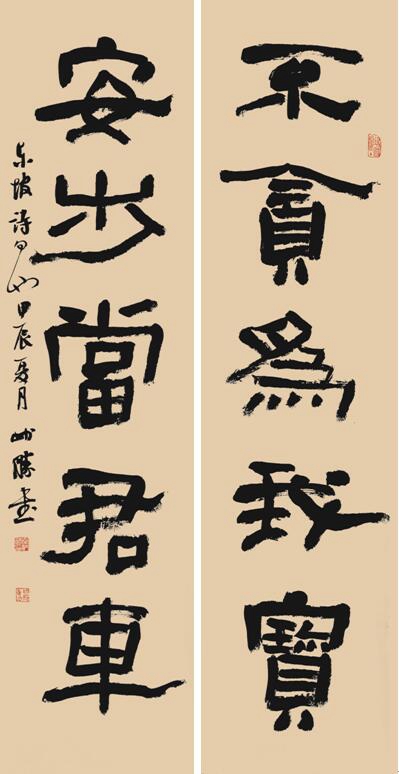 不貪爲我寶
安步當君車
東坡詩句 甲辰夏月 勝書